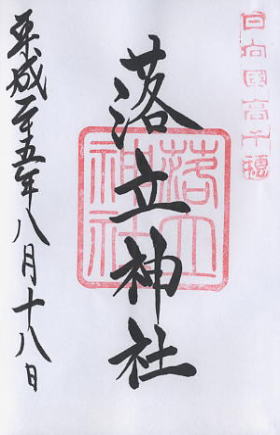 日向國高千穂
落立神社
落立神社
平成二十五年八月十八日